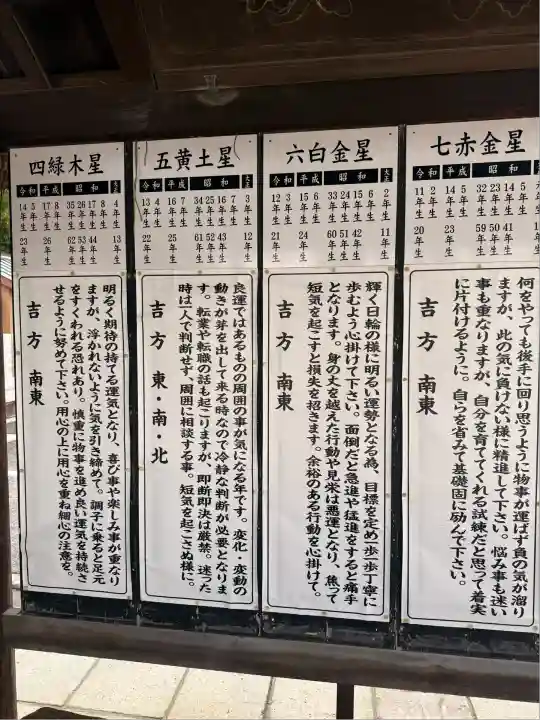 七赤金星
令和 平成 昭和
11年生 2年生 14年生 5年生 32年生 23年生 14年生 5年生
20年生 23年生 59年生 50年生 41年生
何をやっても後手に回り思うように物事が運ばず負の気が溜り
ますが、此の気に負けない様に精進して下さい。悩み事も迷い
事も重なりますが、自分を育ててくれる試練だと思って着実
に片付けるように。自らを省みて基礎固に励んで下さい。
吉方 南東
六白金星
令和 平成 昭和 大正
12年生 3年生 15年生 6年生 33年生 24年生 15年生 6年生 2年生
21年生 24年生 60年生 51年生 42年生 11年生
輝く日輪の様に明るい運勢となる為、目標を定め一歩一歩丁寧に
歩むよう心掛けて下さい。面倒だと急進や猛進をすると痛手
となります。身の丈を越えた行動や見栄は悪運となり、焦って
短気を起こすと損失を招きます。余裕のある行動を心掛けて。
吉方 南東
五黄土星
令和 平成 昭和 大正
13年生 4年生 16年生 7年生 34年生 25年生 16年生 7年生 3年生
22年生 25年生 61年生 52年生 43年生 12年生
良運ではあるものの周囲の事が気になる年です。変化・変動の
動きが芽を出して来る時なので冷静な判断が必要となりま
す。転業や転職の話も起こりますが、即断即決は厳禁。迷った
時は一人で判断せず、周囲に相談する事。短気を起こさぬ様に。
吉方 東・南・北
四緑木星
令和 平成 昭和 大正
14年生 5年生 17年生 8年生 35年生 26年生 17年生 8年生 4年生
23年生 26年生 62年生 53年生 44年生 13年生
明るく期待の持てる運気となり、喜び事や楽しみ事が重なり
ますが、浮かれないように気を引き締めて。調子に乗ると足元
をすくわれる恐れあり。慎重に物事を進め良い運気を持続さ
せるように努めて下さい。用心の上に用心を重ね細心の注意を。
吉方 南東